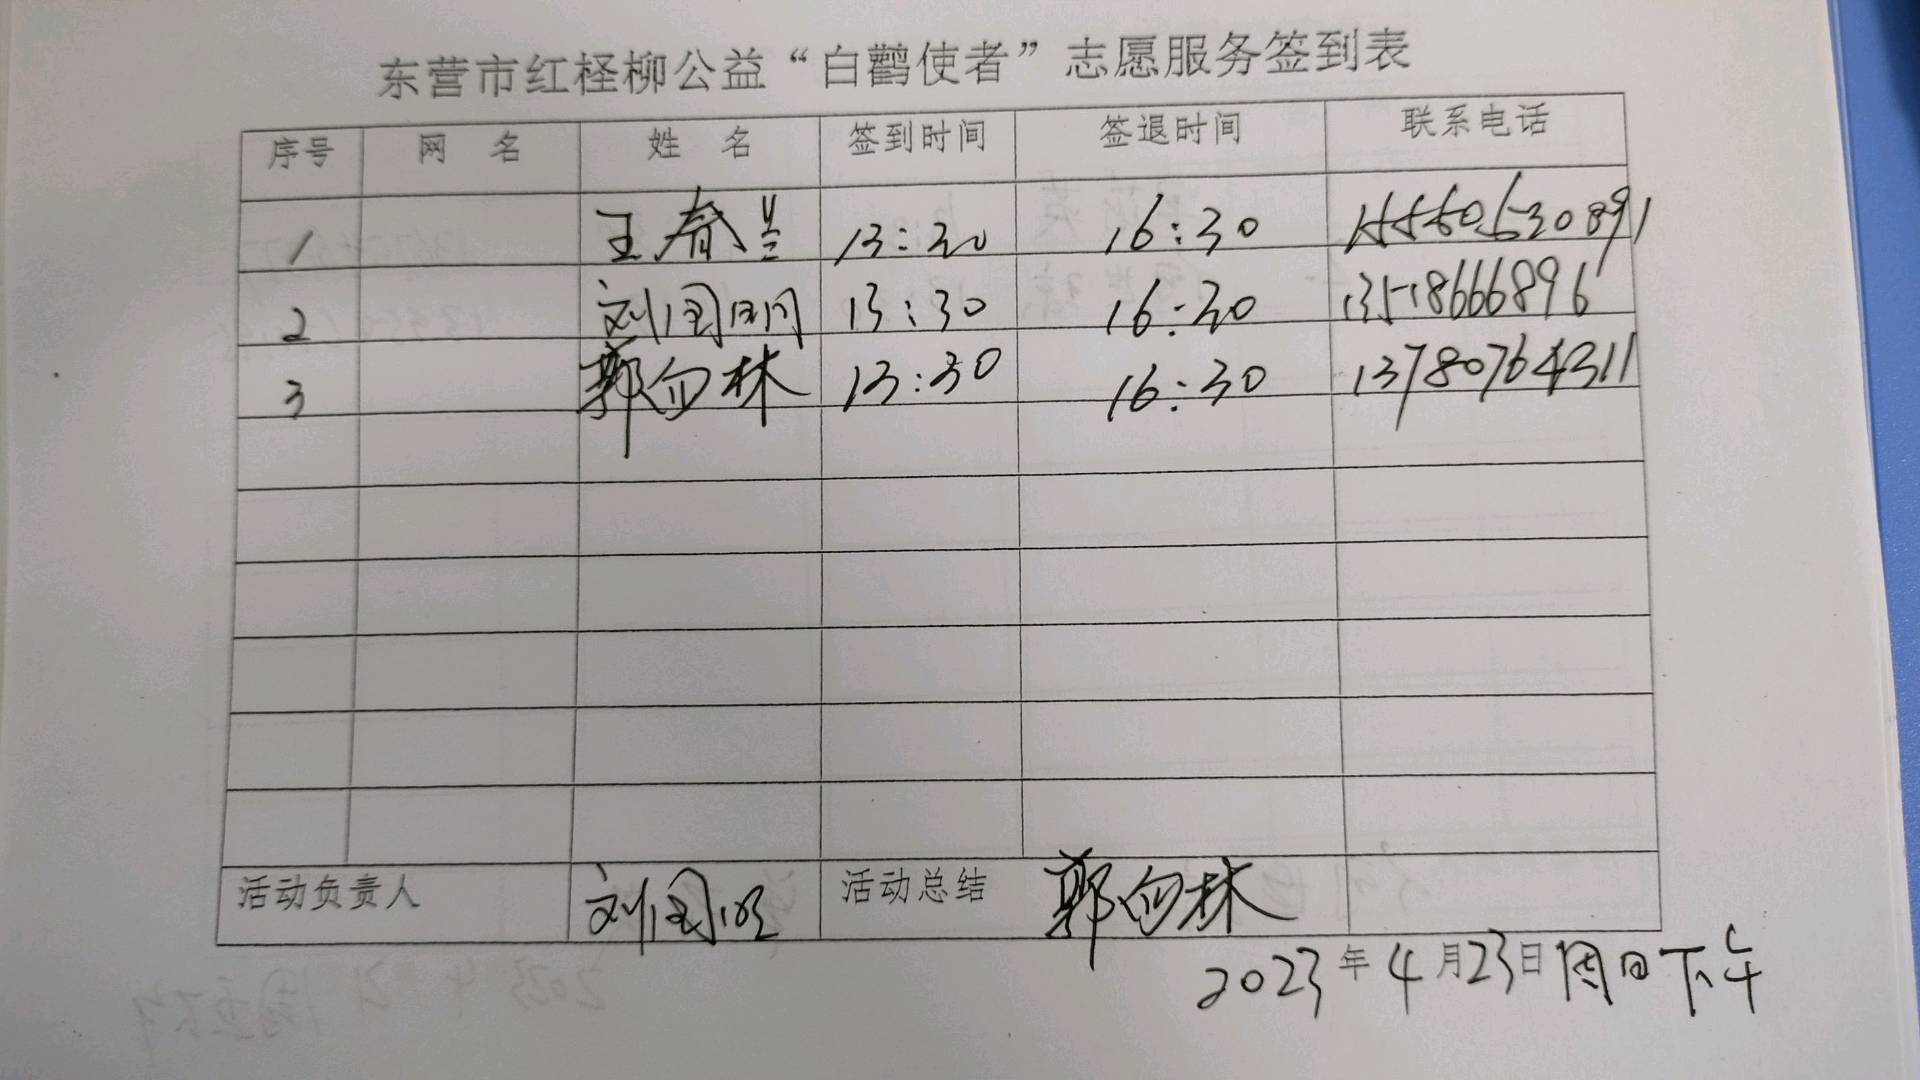 东营市红柽柳公益“白鹳使者”志愿服务签到表
序号 网 名 姓 名 签到时间 签退时间 联系电话
1 王春兰 13:30 16:30 15550630891
2 刘国明 13:30 16:30 13518666896
3 郭向林 13:30 16:30 13780764311
活动负责人 刘国明 活动总结 郭向林
2023年4月23日周日下午